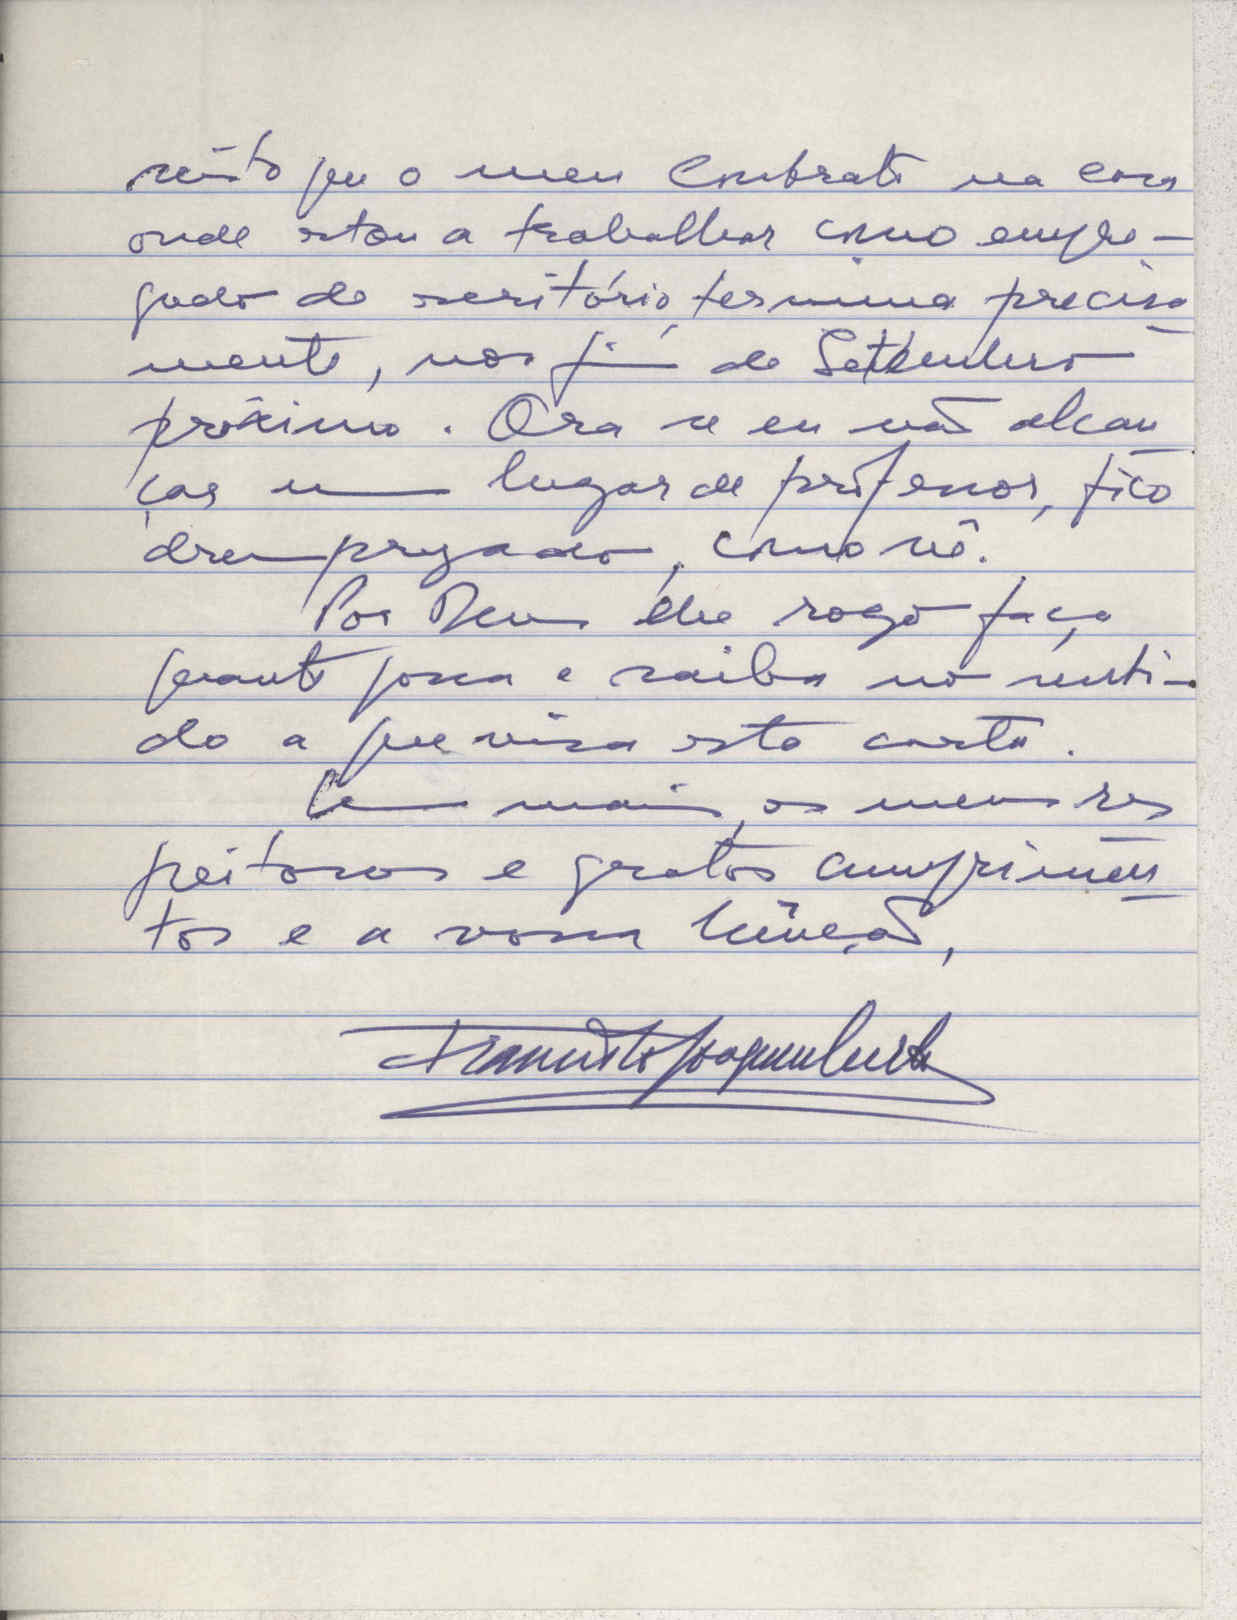 visto que o meu contrato na casa
onde estou a trabalhar como empre-
gado de escritório, termina precisa-
mente, nos fim de Setembro
próximo. Ora se eu não alcan-
çar um lugar de professor, fico
desempregado, como vê.
Por Deus lhe rogo faça
quanto possa e saiba no senti-
do a que visa esta carta.
Sem mais, os meus res
peitosos e gratos cumprimen-
tos e a vossa bênção,
Francisco Joaquim